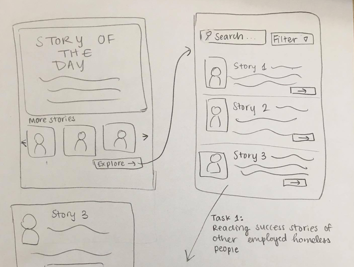 STORY OF
THE
DAY
More stories
Explore →
Search...
Filter ▽
Story 1
→
Story 2
→
Story 3
→
Story 3
Task 1:
Reading success stories of
other employed homeless
people